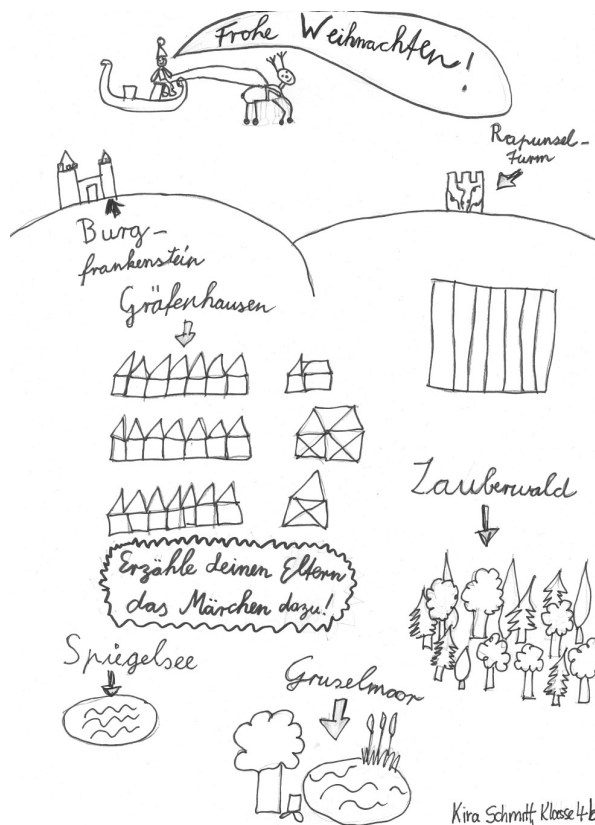 Frohe Weihnachten!
Rapunsel-
turm
Burg-
frankenstein
Gräfenhausen
Zauberwald
Erzähle deinen Eltern
das Märchen dazu!
Spiegelsee
Gruselmoor
Kira Schmitt, Klasse 4b